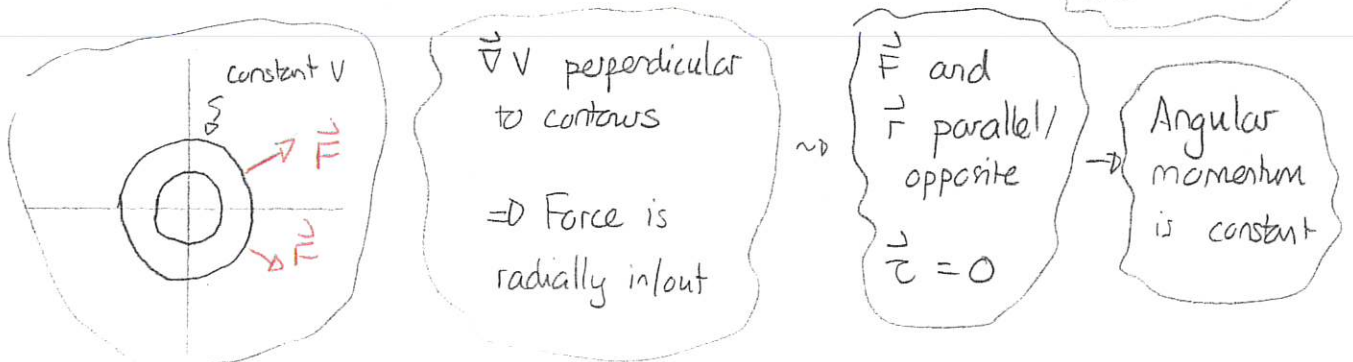 constant V
F⃗
F⃗
∇⃗V perpendicular
to contours
⇒ Force is
radially in/out
~>
F⃗ and
r⃗ parallel/
opposite
τ⃗ = 0
→
Angular
momentum
is constant